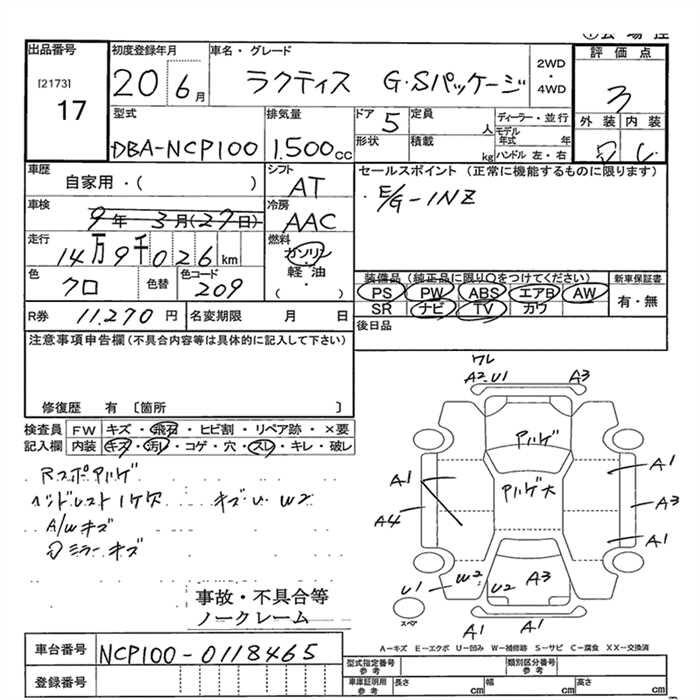 出品番号
[2173]
17
初度登録年月
20 6月
車名・グレード
ラクティス G・Sパッケージ
2WD・4WD
評価点
3
外装 内装
型式
DBA-NCP100
排気量
1.500cc
ドア
5
形状
定員
人
積載
kg
ディーラー・並行
モデル年式
年
ハンドル 左・右
車歴
自家用・( )
シフト
AT
セールスポイント (正常に機能するものに限ります)
・E/G-1NZ
車検
9年 3月(27日)
冷房
AAC
走行
14万9千026km
燃料
ガソリン
軽油
・( )
色
クロ
色替
色コード
209
装備品 (純正品に限り○をつけてください)
PS PW ABS エアB AW
SR ナビ TV カワ
新車保証書
有・無
R券
11.270円
名変期限
月 日
後日品
注意事項申告欄(不具合内容等は具体的に記入して下さい)
修復歴 有 〔箇所 〕
検査員記入欄
FW キズ・飛石・ヒビ割・リペア跡・×要
内装 キズ・汚レ・コゲ・穴・スレ・キレ・破レ
Rスポアハゲ
ヘッドレスト1ケ欠
A/Wキズ
ミラーキズ
W2
ワレ
A2 U1
A3
アハゲ
アハゲ大
A1
A4
A1
A3
A1
U1
W2
U2
A3
スペア
A1
A1
事故・不具合等
ノークレーム
A－キズ E－エクボ U－凹み W－補修跡 S－サビ C－腐食 XX－交換済
車台番号
NCP100-0118465
登録番号
型式指定番号
参考
類別区分番号
参考
車庫証明用
参考
長さ
cm
幅
cm
高さ
cm